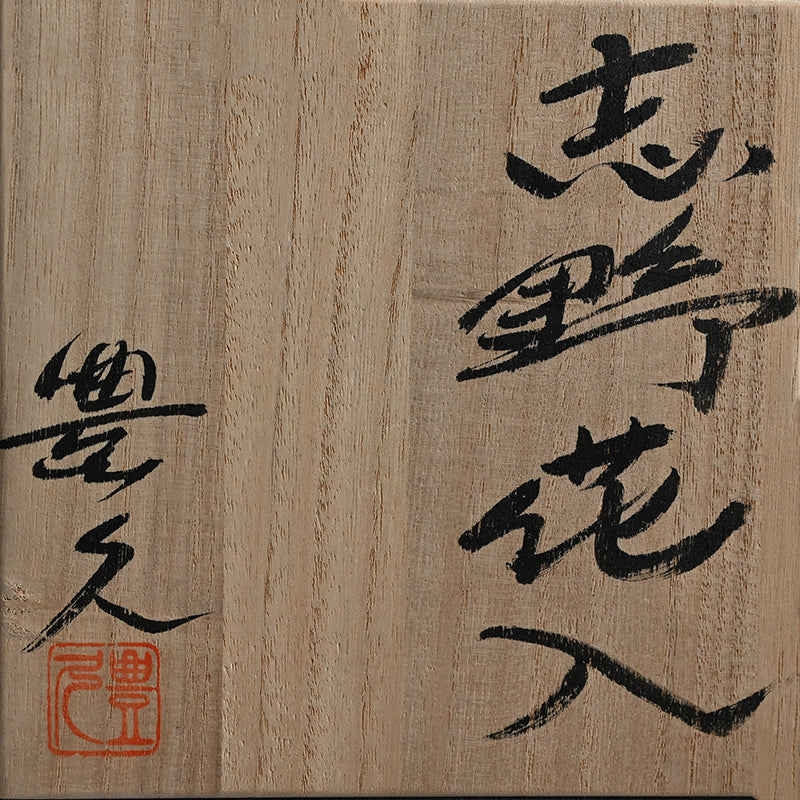 志野花入
豊久
豊久